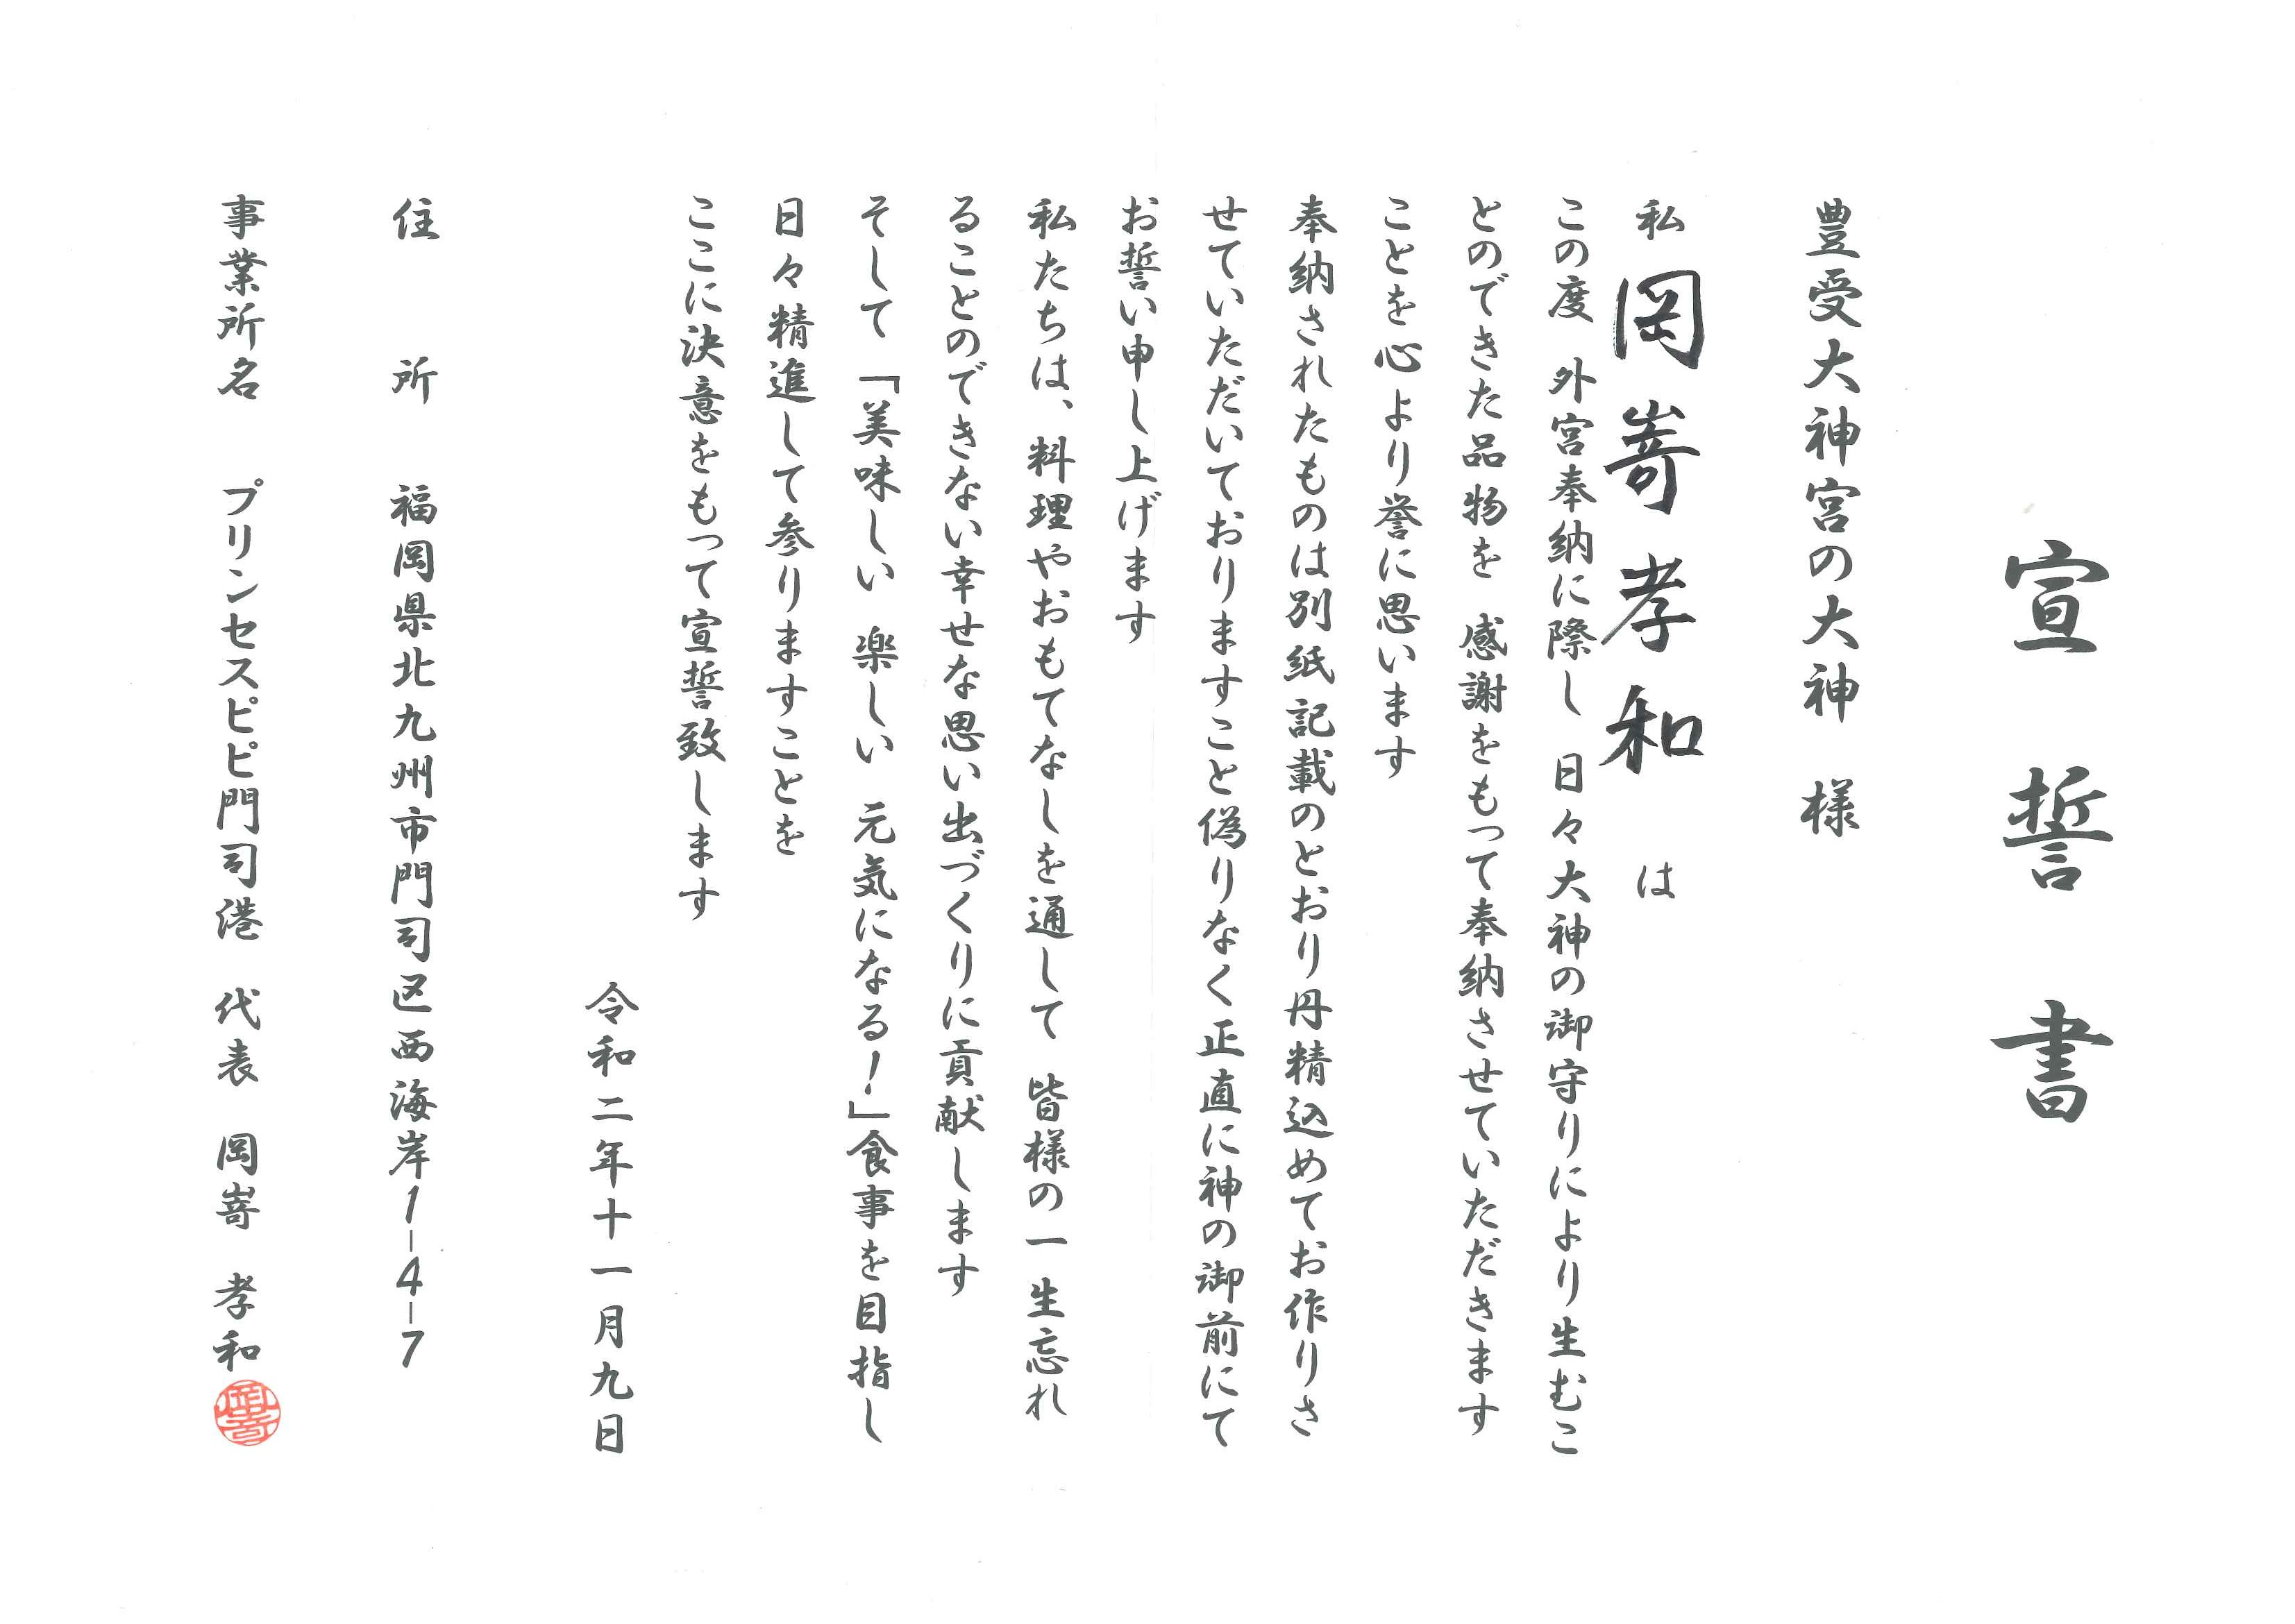 宣誓書
豊受大神宮の大神　様
私　岡嵜孝和　は
この度　外宮奉納に際し　日々大神の御守りにより生むこ
とのできた品物を　感謝をもって奉納させていただきます
ことを心より誉に思います
奉納されたものは別紙記載のとおり丹精込めてお作りさ
せていただいておりますこと偽りなく正直に神の御前にて
お誓い申し上げます
私たちは、料理やおもてなしを通して　皆様の一生忘れ
ることのできない幸せな思い出づくりに貢献します
そして「美味しい　楽しい　元気になる！」食事を目指し
日々精進して参りますことを
ここに決意をもって宣誓致します
令和二年十一月九日
住　所　福岡県北九州市門司区西海岸1-4-7
事業所名　プリンセスピピ門司港　代表　岡嵜　孝和
岡嵜